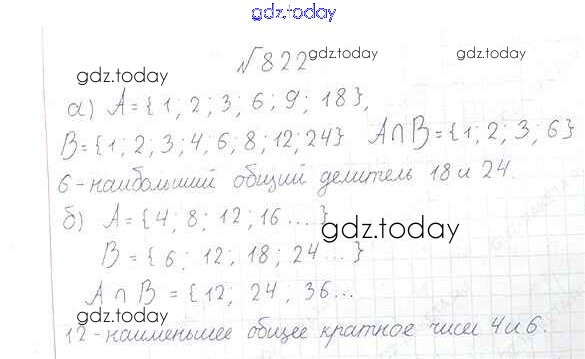 gdz.today
№822 gdz.today gdz.today
gdz.today
а) A={1; 2; 3; 6; 9; 18},
B={1; 2; 3; 4, 6; 8; 12; 24} A∩B={1; 2; 3, 6}
6-наибольший общий делитель 18 и 24.
б) A={4; 8; 12; 16...}
gdz.today
B={6; 12; 18; 24...}
A∩B={12; 24; 36...
gdz.today
12-наименьшее общее кратное чисел 4 и 6.